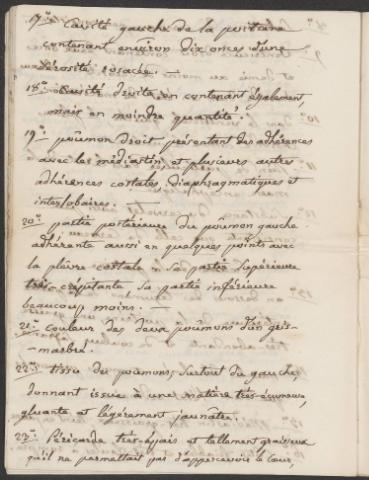 17.° Cavité gauche de la poitrine
contenant environ dix onces d'une
sérosité rosacée. —
18.° Cavité droite en contenant également,
mais en moindre quantité.
19.° poûmon droit présentant des adhérences
avec les médiastin et plusieurs autres
adhérences costales, diaphragmatiques et
interlobaires. —
20.° partie postérieure du poûmon gauche
adhérente aussi en quelques points avec
la plèvre costale à sa partie Supérieure
très crépitante sa partie inférieure
beaucoup moins. —
21.° couleur des deux poûmons d'un gris-
-marbré.
22.° tissu des poumons, surtout du gauche,
donnant issue à une matière très-écumeuse,
gluante et légèrement jaunâtre.
23.° Péricarde très-épais et tellement graisseux
qu'il ne permettait pas d'appercevoir le Cœur,